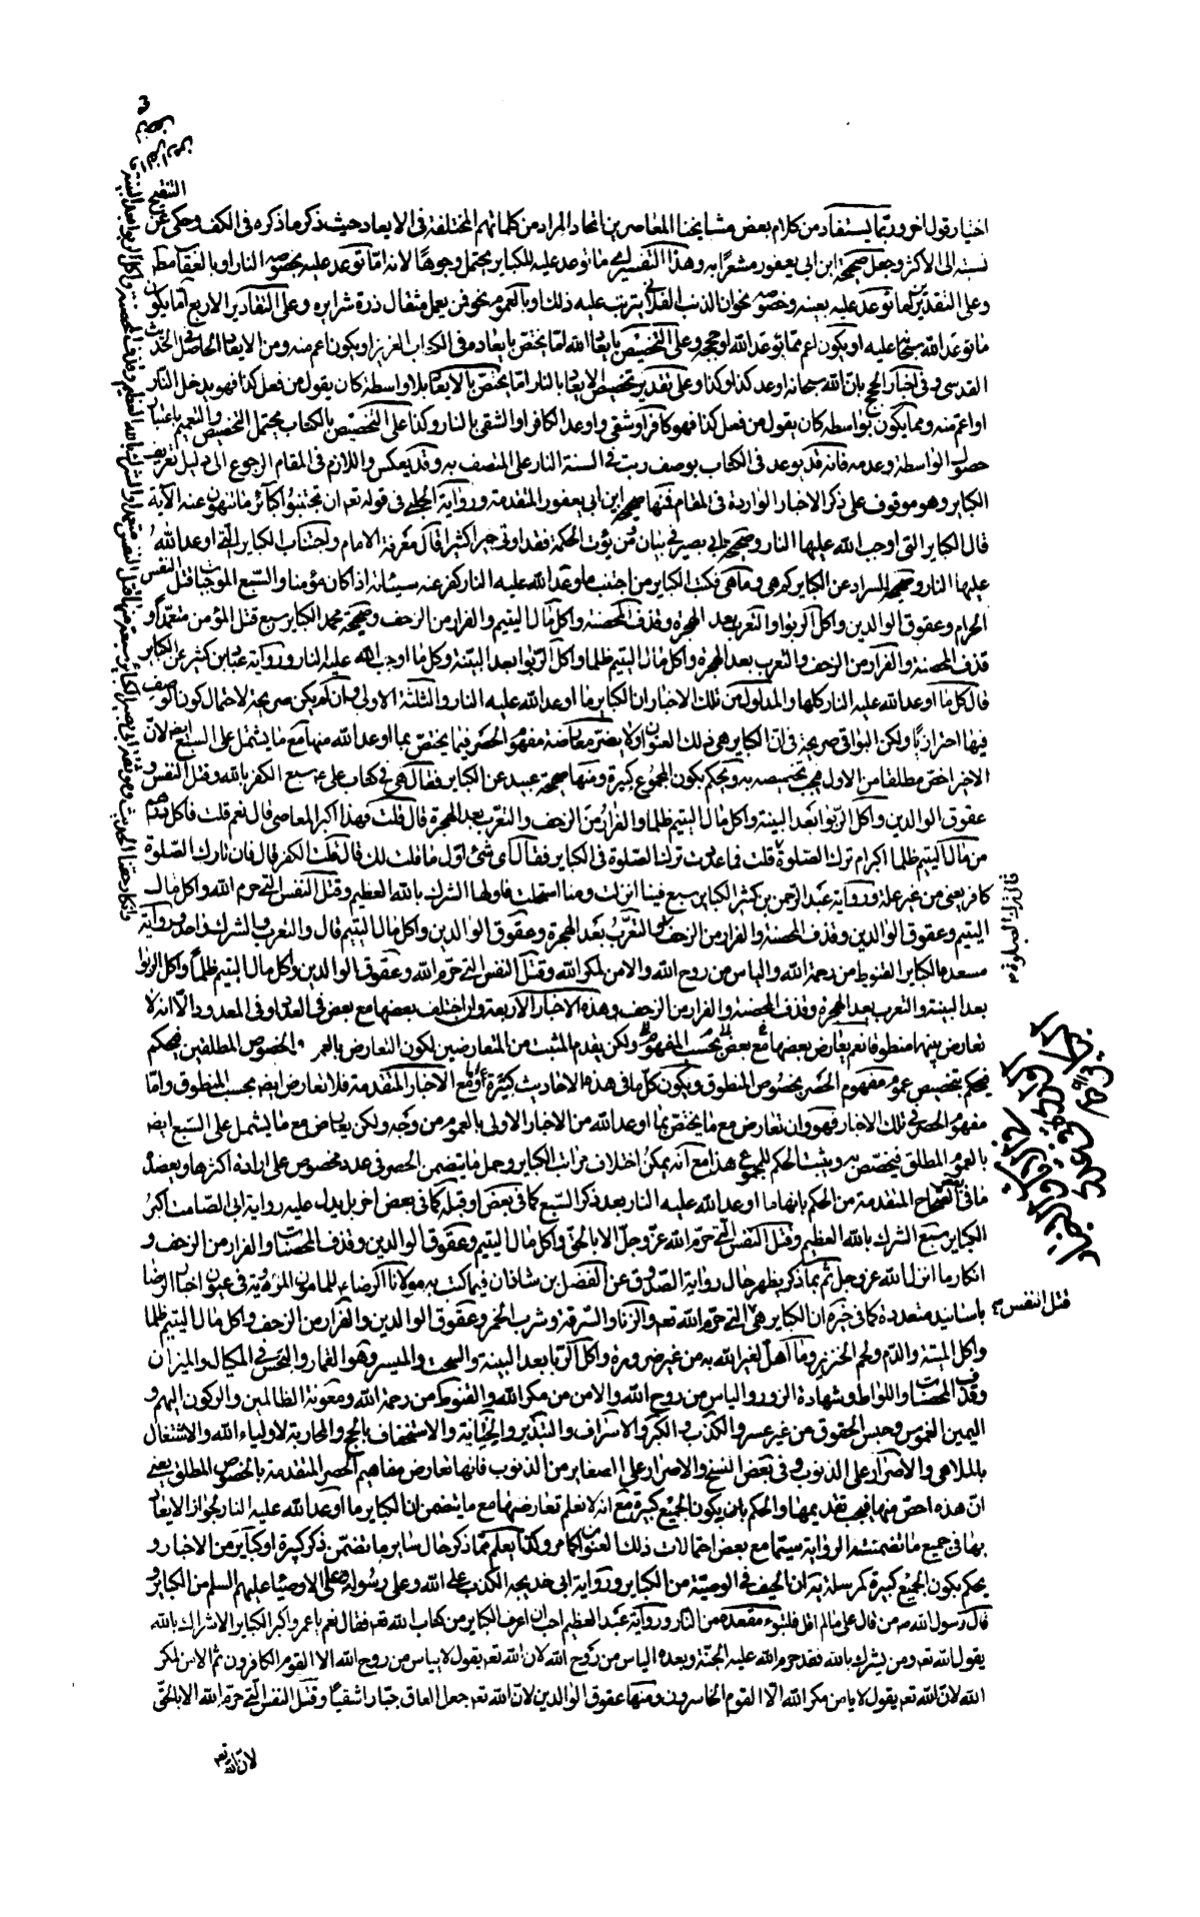 اختيار قول اخر وربما يستفاد من كلام بعض مشايخنا المعاصرين اتحاد المراد من كلماتهم المختلفة فى الايعاد حيث ذكر ما ذكره فى الكف وحكى عن التنقيح
نسبته الى الاكثر وجعل صحيحة ابن ابى يعفور مشعرا به وهذا التفسير اى ما توعد عليه للكباير محتمل وجوها لانه اما توعد عليه بخصوص النار او بالعقاب مط
وعلى التقديرين اما توعد عليه بعينه وخصوصه نحو ان الذنب الفلانى يترتب عليه ذلك او بالعموم نحو فمن يعمل مثقال ذرة شرا يره وعلى التقادير الاربع اما يكون
ما توعد الله سبحانه عليه او يكون اعم مما توعد الله او حججه وعلى التخصيص بايعاد الله اما يختص بايعاده فى الكتاب العزيز او يكون اعم منه ومن الايعاد الحاصل فى الحديث
القدسى وفى اخبار الحجج بان الله سبحانه اوعد كذا وكذا وعلى تقدير تخصيص الايعاد بالنار اما يختص بالايعاد بلا واسطة كان يقول من فعل كذا فهو يدخل النار
او اعم منه ومما يكون بواسطة كان يقول من فعل كذا فهو كافر او شقى واوعد الكافر او الشقى بالنار وكذا على التخصيص بالكتاب يحتمل التخصيص والتعميم باعتبار
حصول الواسطة وعدمه فانه قد يوعد فى الكتاب بوصف رتب فى السنة النار على المتصف به وقد يعكس واللازم فى المقام الرجوع الى دليل تعريف
الكباير وهو موقوف على ذكر الاخبار الواردة فى المقام فمنها صحيحة ابن ابى يعفور المتقدمة ورواية الحلبى فى قوله تعم ان تجتنبوا كبائر ما تنهون عنه الآية
قال الكباير التى اوجب الله عليها النار وصحيحة ابى بصير فى بيان ومن يؤت الحكمة فقد اوتى خيرا كثيرا قال معرفة الامام واجتناب الكباير التى اوعد الله
عليها النار وصحيحة السراد عن الكباير كم هى وما هى فكتب الكباير من اجتنب ما وعد الله عليه النار كفر عنه سيئاته اذا كان مؤمنا والسبع الموجبات قتل النفس
الحرام وعقوق الوالدين واكل الربوا والتعرب بعد الهجرة وقذف المحصنة واكل مال اليتيم والفرار من الزحف وصحيحة محمد الكباير سبع قتل المؤمن متعمدا و
قذف المحصنة والفرار من الزحف والتعرب بعد الهجرة واكل مال اليتيم ظلما واكل الربوا بعد البينة وكل ما اوجب الله عليه النار ورواية عباد بن كثير عن الكباير
قال كل ما اوعد الله عليه النار كلها والمدلول من تلك الاخبار ان الكباير ما اوعد الله عليه النار والثلثة الاولى وان لم يكن صريحة لاحتمال كون الوصف
فيها احترازيا ولكن البواقى صريحة فى ان الكباير هى ذلك العنوان ولا يضر معارضة مفهوم الحصر فيما يختص بما اوعد الله منها مع ما يشمل على السبع ايضه لان
الاخير اخص مطلقا من الاول فيجب تخصيصه به ويحكم بكون المجموع كبيرة ومنها صحيحة عبيد عن الكباير فقال هى فى كتاب على ع سبع الكفر بالله وقتل النفس و
عقوق الوالدين واكل الربوا بعد البينة واكل مال اليتيم ظلما والفرار من الزحف والتعرب بعد الهجرة قال قلت فهذا اكبر المعاصى قال نعم قلت فاكل درهم
من مال اليتيم ظلما اكبر ام ترك الصلوة قلت فما عددت ترك الصلوة فى الكباير فقال اى شئ اول ما قلت لك قال قلت الكفر قال فان تارك الصلوة
كافر يعنى من غير علة ورواية عبد الرحمن بن كثير الكباير سبع فينا انزلت ومنا استحلت فاولها الشرك بالله العظيم وقتل النفس التى حرم الله واكل مال
اليتيم وعقوق الوالدين وقذف المحصنة والفرار من الزحف والتعرب بعد الهجرة وعقوق الوالدين واكل مال اليتيم قال والتعرب والشرك واحد ورواية
مسعدة الكباير القنوط من رحمة الله والياس من روح الله والامن لمكر الله وقتل النفس التى حرم الله وعقوق الوالدين واكل مال اليتيم ظلما واكل الربوا
بعد البينة والتعرب بعد الهجرة وقذف المحصنة والفرار من الزحف وهذه الاخبار الاربعة وان اختلف بعضها مع بعض فى العدد او فى المعدود الا انه لا
تعارض بينها منطوقا نعم يعارض بعضها مع بعض بحسب المفهوم ولكن يقدم المثبت من المتعارضين لكون التعارض بالعموم والخصوص المطلقين فيحكم
فيحكم بتخصيص عموم مفهوم الحصر بخصوص المنطوق ويكون كل ما فى هذه الاحاديث كبيرة واما مع الاخبار المتقدمة فلا تعارض ايضه بحسب المنطوق واما
مفهوم الحصر فى تلك الاخبار فهو وان تعارض مع ما يختص بما اوعد الله من الاخبار الاولى بالعموم من وجه ولكن يعارض مع ما يشمل على السبع ايضه
بالعموم المطلق فيخصص به ويثبت الحكم للمجموع هذا مع انه يمكن اختلاف مراتب الكباير وحمل ما يتضمن الحصر فى عدد مخصوص على ارادة اكثرها ويعضده
ما فى الصحاح المتقدمة من الحكم بانها ما اوعد الله عليه النار بعد ذكر السبع كما فى بعض او قبله كما فى بعض اخر بل يدل عليه رواية ابى الصامت اكبر
الكباير سبع الشرك بالله العظيم وقتل النفس التى حرم الله عز وجل الا بالحق واكل مال اليتيم وعقوق الوالدين وقذف المحصنات والفرار من الزحف و
انكار ما انزل الله عز وجل ثم بما ذكر يظهر حال رواية الصدوق عن الفضل بن شاذان فيما كتب به مولانا الرضا ء للمامون المروية فى عيون اخبار الرضا
باسانيد متعددة كما فى خبره ان الكباير هى التى حرم الله تعم والزنا والسرقة وشرب الخمر وعقوق الوالدين والفرار من الزحف واكل مال اليتيم ظلما
واكل الميتة والدم ولحم الخنزير وما اهل لغير الله به من غير ضرورة واكل الربا بعد البينة والسحت والميسر وهو القمار والبخس فى المكيال والميزان
وقذف المحصنات واللواط وشهادة الزور والياس من روح الله والامن من مكر الله والقنوط من رحمة الله ومعونة الظالمين والركون اليهم و
اليمين الغموس وحبس الحقوق من غير عسر والكذب والكبر والاسراف والتبذير والخيانة والاستخفاف بالحج والمحاربة لاولياء الله والاشتغال
بالملاهى والاصرار على الذنوب وفى بعض النسخ والاصرار على الصغاير من الذنوب فانها تعارض مفاهيم الحصر المتقدمة بالخصوص المطلق يعنى
ان هذه اخص منها فيجب تقديمها والحكم بان يكون الجميع كبيرة مع انه لا نعلم تعارضها مع ما يتضمن ان الكباير ما اوعد الله عليه النار لجواز الايعاد
بها فى جميع ما تضمنته الرواية سيما مع بعض احتمالات ذلك العنوان كما مر وكذا يعلم مما ذكر حال ساير ما تضمن ذكر كبيرة او كباير من الاخبار و
يحكم بكون الجميع كبيرة كمرسلة يه ان الحيف فى الوصية من الكباير ورواية ابى خديجه الكذب على الله وعلى رسوله وعلى الاوصياء عليهم السلم من الكباير و
قال رسول الله ص من قال على ما لم اقل فليتبوء مقعده من النار ورواية عبد العظيم احب ان اعرف الكباير من كتاب الله تعم فقال نعم يا عمرو اكبر الكباير الاشراك بالله
يقول الله تعم ومن يشرك بالله فقد حرم الله عليه الجنة وبعده الياس من روح الله لان الله تعم يقول لا يياس من روح الله الا القوم الكافرون ثم الامن لمكر
الله لان الله تعم يقول لا يامن مكر الله الا القوم الخاسرون ومنها عقوق الوالدين لان الله تعم جعل العاق جبارا شقيا وقتل النفس التى حرم الله الا بالحق
لان الله تعم
قال ترك الصلوة
قتل النفس